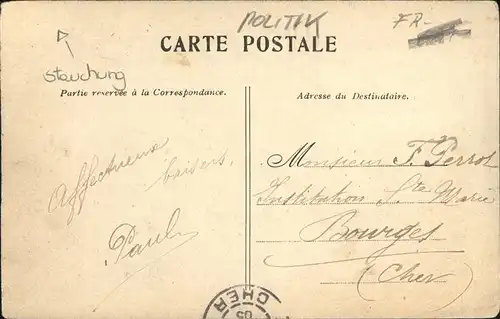 POLITIK
FR-
CARTE POSTALE
Stauchung
Partie reservée à la Correspondance.
Adresse du Destinataire.
Affectueux
baisers.
Paul
Monsieur F. Perrot
Institution Ste Marie
Bourges
(Cher)
05
CHER